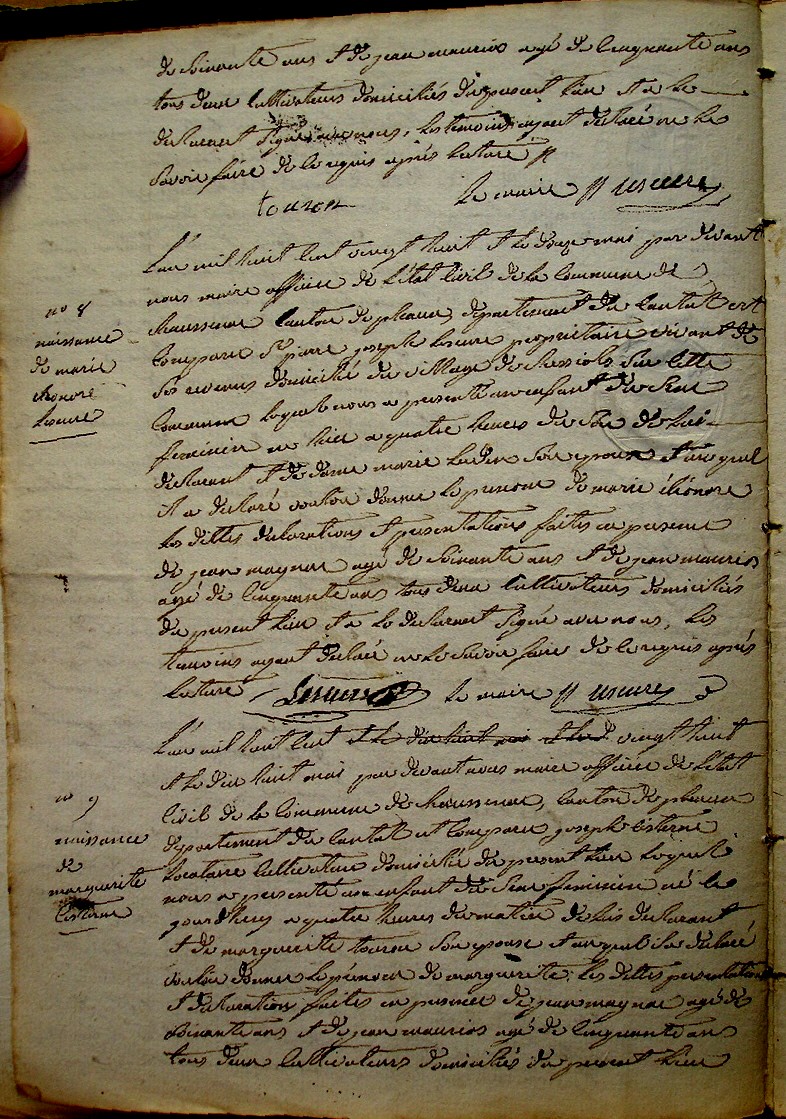 de soixante ans et de jean mauriol agé de cinquante ans
tous deux cultivateurs domiciliés du present lieu et a le
declarant signé avec nous, les temoins ayant declaré ne le
savoir faire de ce requis après lecture
touron le maire
L'an mil huit cent vingt huit et le douze mai par devant
nous maire officier de l'état civil de la commune de
chaussenac canton de pleaux, département du cantal est
comparu Sr pierre joseph proprietaire vivant de
ses revenus domicilié du village de sur cette
commune lequel nous a presenté un enfant du sexe
feminin né hier a quatre heures du soir de lui
declarant et de dame marie son epouse et auquel
il a declaré vouloir donner le prenom de marie éléonore
les dittes déclarations et presentations faites en presence
de jean magnac agé de soixante ans et de jean mauriol
agé de cinquante ans tous deux cultivateurs domiciliés
du present lieu et a le declarant signé avec nous, les
temoins ayant declaré ne le savoir faire de ce requis après
lecture le maire
L'an mil huit cent et le dix huit mai vingt huit
et le dix huit mai par devant nous maire officier de l'état
civil de la commune de chaussenac, canton de pleaux
département du cantal est comparu joseph cisterne
locataire cultivateur domicilié du present lieu lequel
nous a presenté un enfant du sexe feminin né le
jourdhuy a quatre heures du matin de lui declarant
et de marguerite touron son epouse et auquel il a declaré
vouloir donner le prénom de marguerite; les dittes presentation
et declaration faites en presence de jean magnac agé de
soixante ans et de jean mauriol agé de cinquante ans
tous deux cultivateurs domiciliés du present lieu
no 8
naissance
de marie
éléonore
no 9
naissance
de
marguerite
cisterne